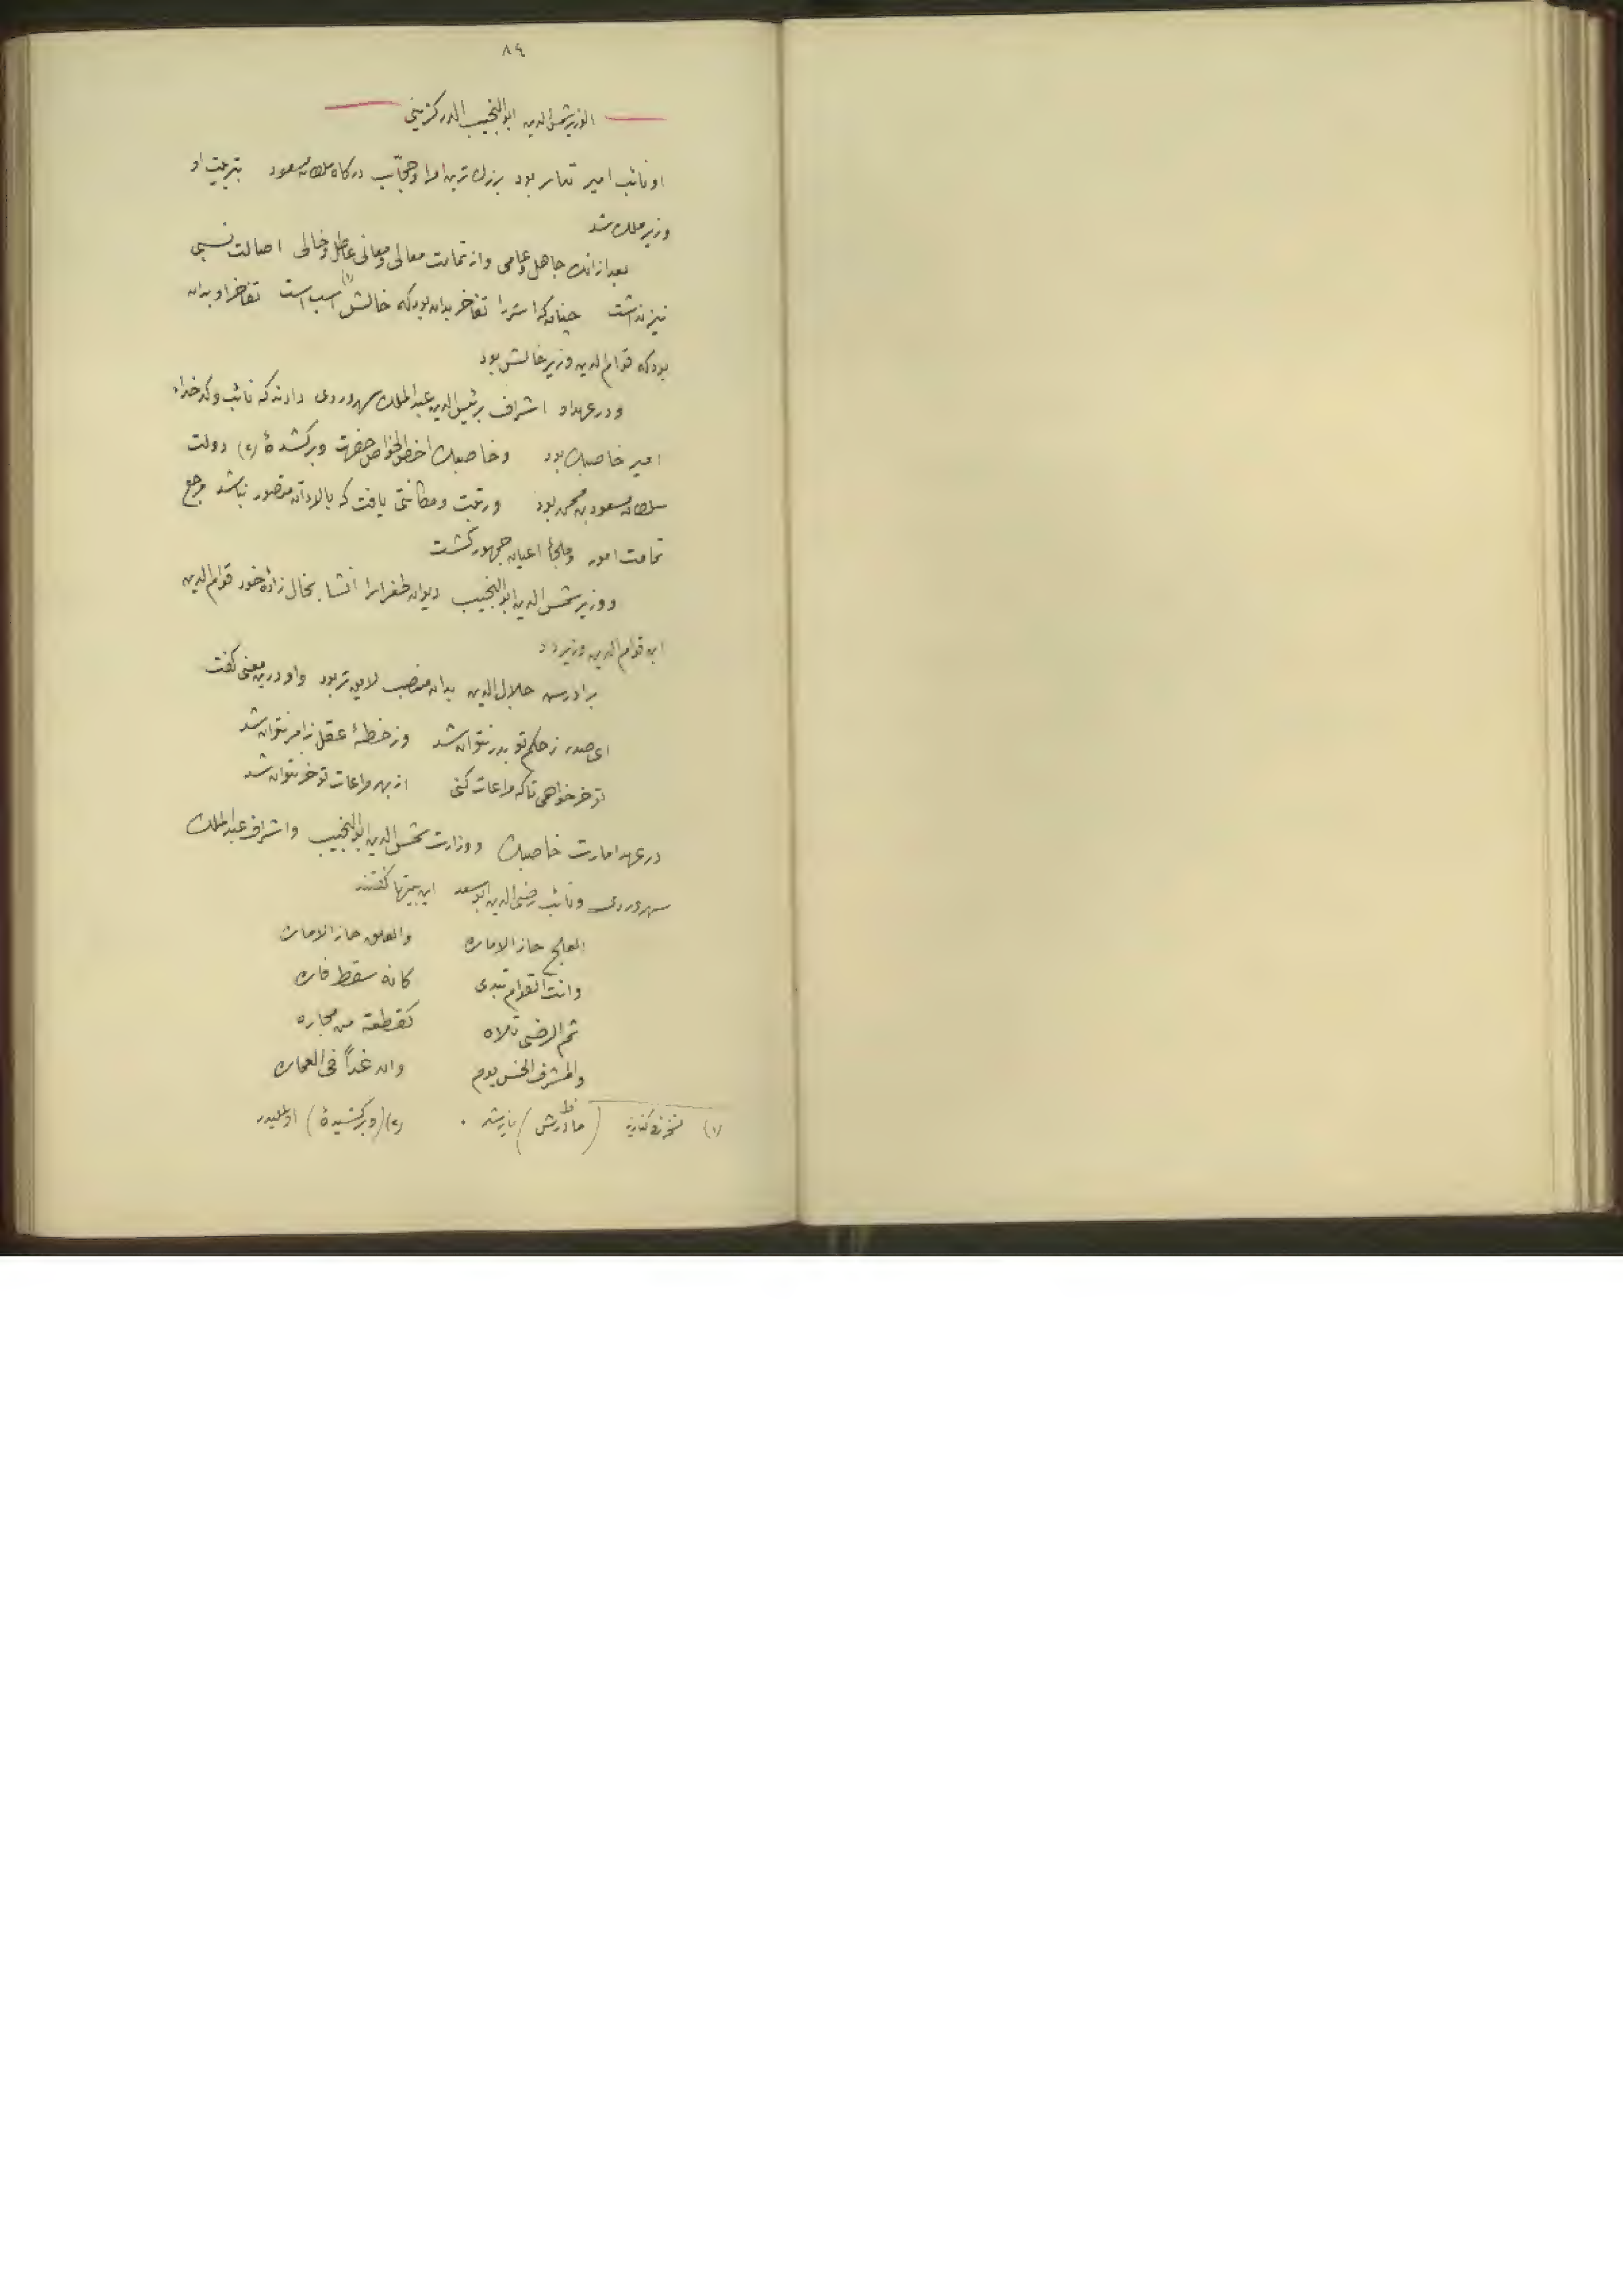 ٨٤
الوزیر شمس الدین ابو النجیب الدرکزینی
او نائب امیر تتار بود بزرك ترین امرا و حجّاب درکاه سلطان مسعود بتربیت او
وزیر مملکت شد
بعد از انك جاهل و عامی و از تمامت معالی و معانی عاطل و خالی اصالت نسبی
نیز نداشت چنانکه استر را تفاخر بدان بود که خالش (١) اسب است تفاخر او بدان
بود که قوام الدین وزیر خالش بود
و در عهد او اشراف برئیس الدین عبد الملك سهروردی دادند که نائب و کدخدای
امیر خاصبك بود و خاصبك اخص الخواص حضرت و برکشدهٔ (٢) دولت
سلطان مسعود بن محمد بود و رتبت و مکانتی یافت که بالای آن متصور نباشد مرجع
تمامت امور و ملجأ اعیان جمهور کشت
و وزیر شمس الدین ابو النجیب دیوان طغرا را انشا بخال زادهٔ خود قوام الدین
ابن قوام الدین وزیر داد
برادرش جلال الدین بدان منصب لایق تر بود و او درین معنی کفت
ای صدر ز حکم تو بدر نتوان شد وز خطهٔ عقل زاستر نتوان شد
تو خر خواهی تا که مراعات کنی از بهر مراعات تو خر نتوان شد
در عهد امارت خاصبك و وزارت شمس الدین ابو النجیب و اشراف عبد الملك
سهروردی و نائب رضی الدین ابو سعد این بیتها کفتند
حاز الاماره حاز الاماره
وانت القوام تبدی کانه سقط فاره
ثم الرضی تلاه کقطعة من حجاره
والمشرف الخس بوم وان غداً فی العماره
(١) (مادرش) (٢) (و برکشیدهٔ)